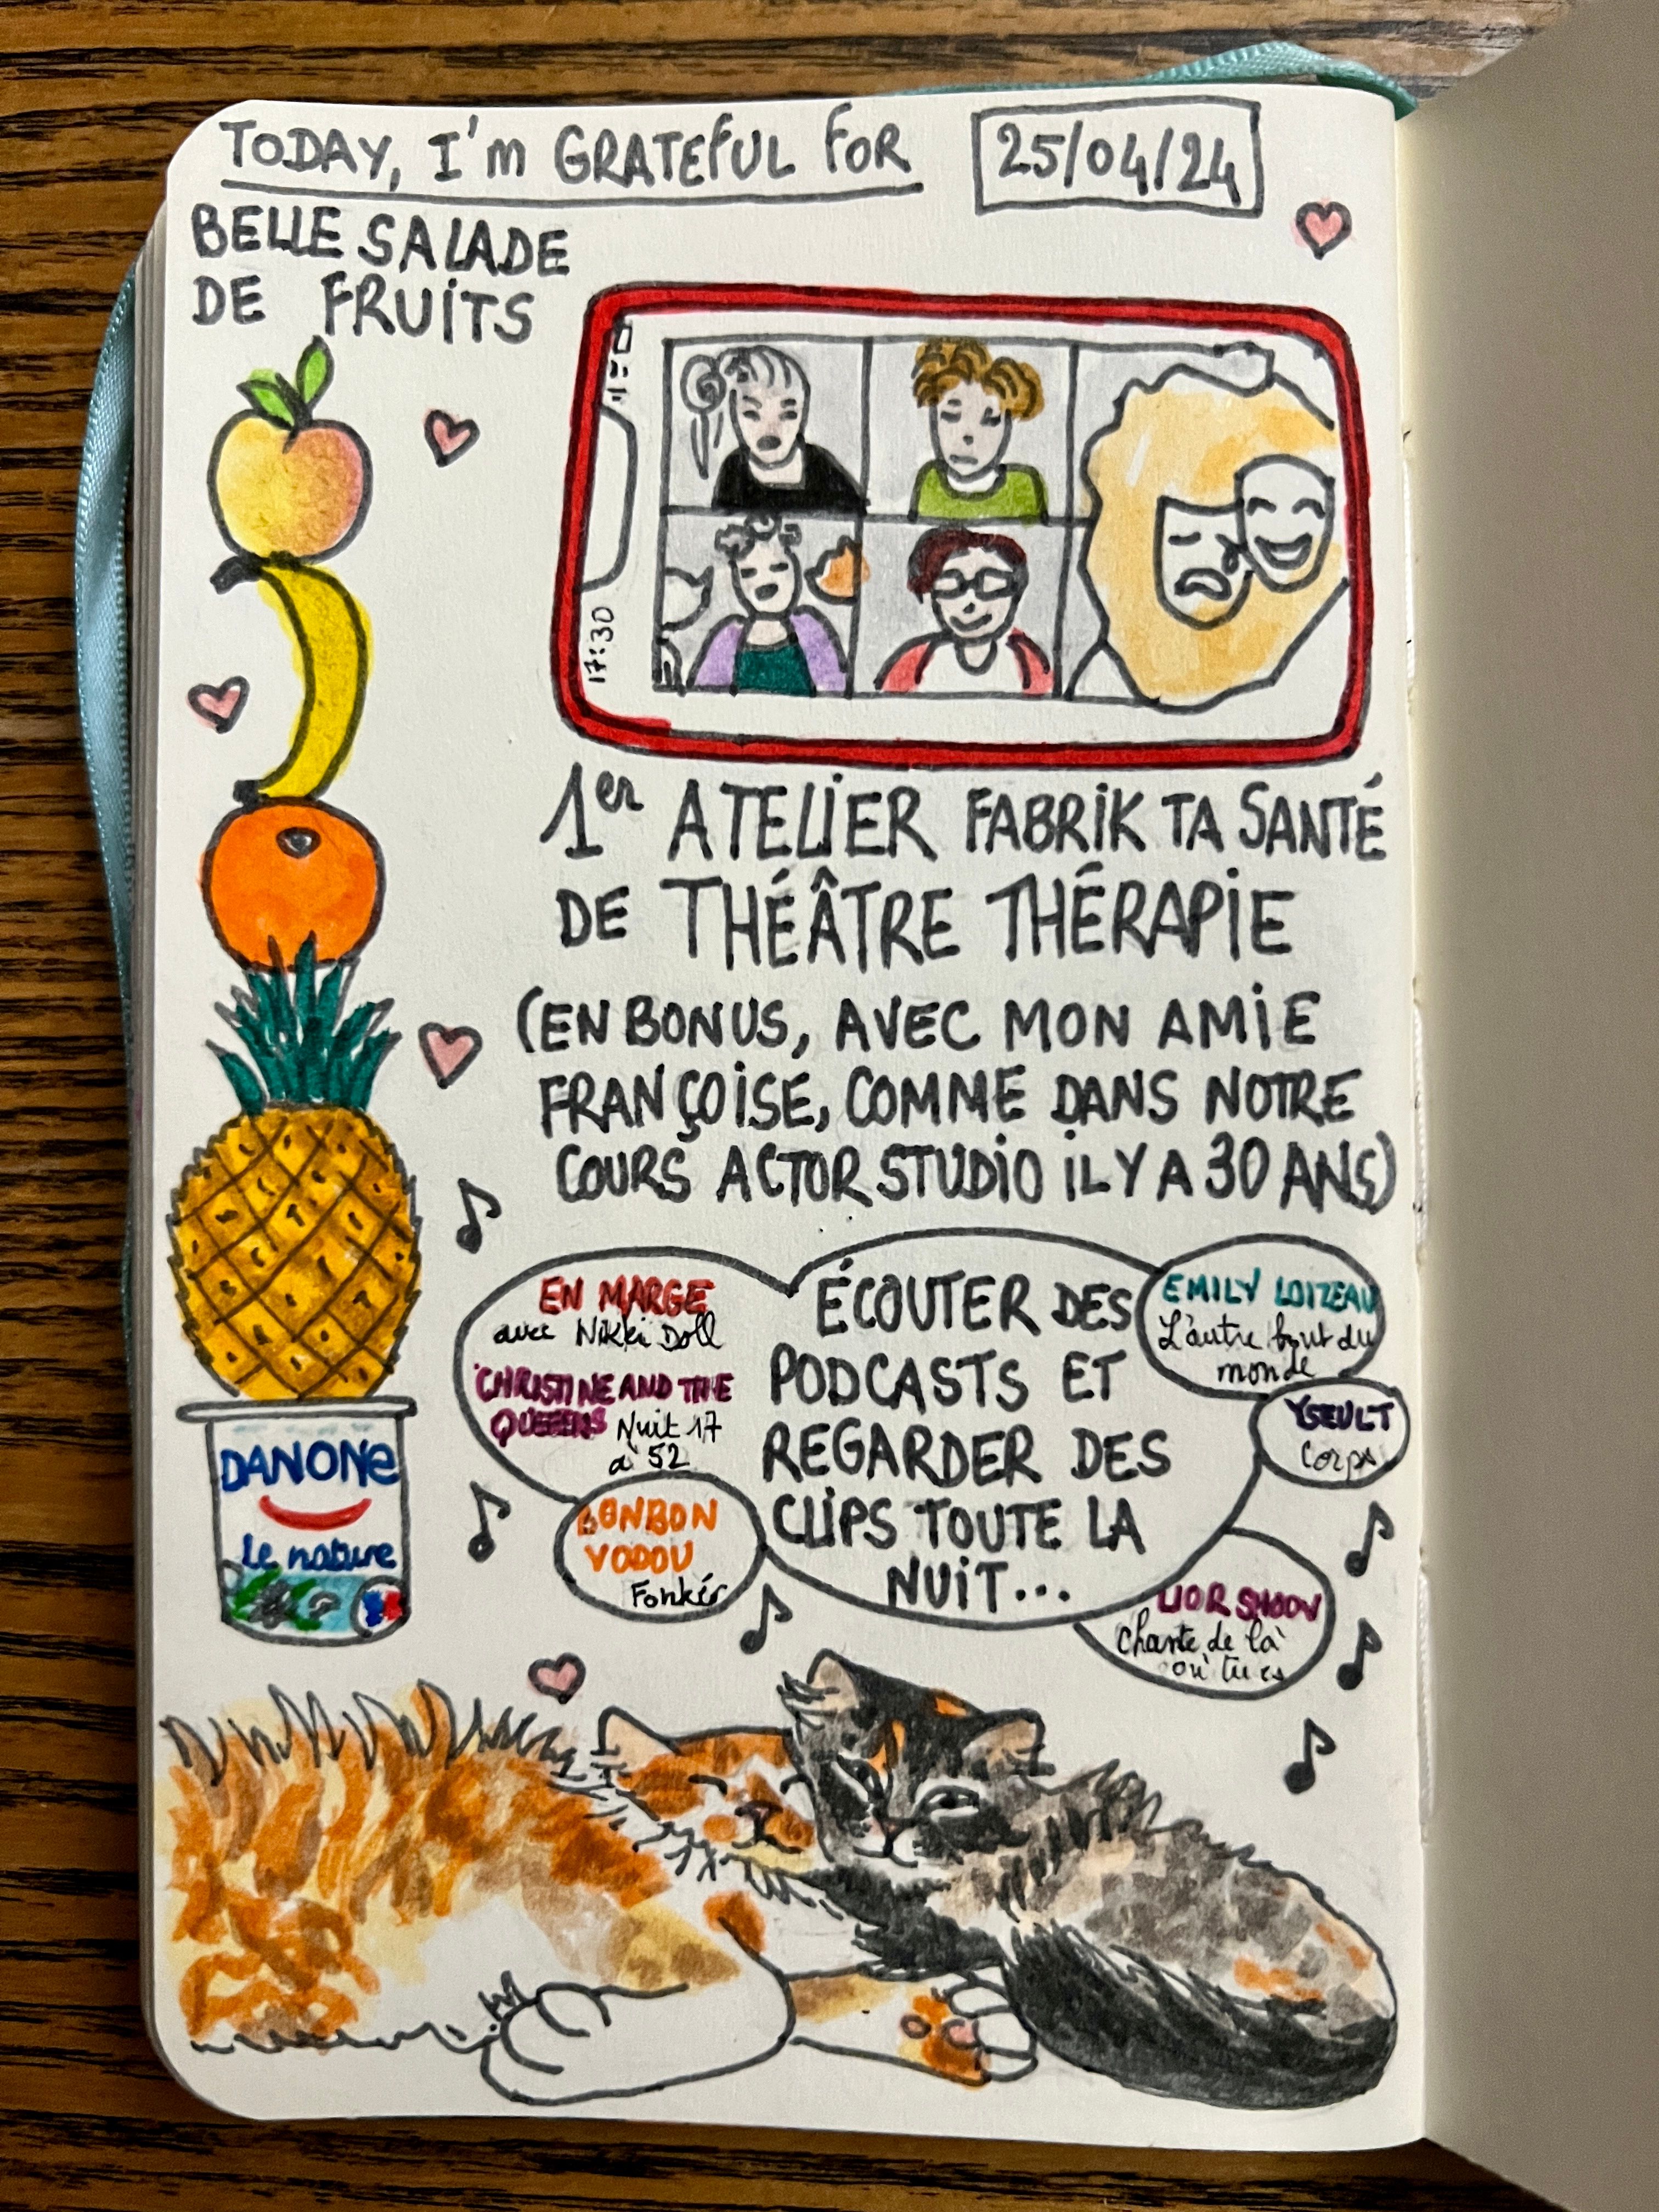 TODAY, I'm GRATEFUL FOR
25/04/24
BELLE SALADE
DE FRUITS
17:30
1er ATELIER FABRIK TA SANTÉ
DE THÉÂTRE THÉRAPIE
(EN BONUS, AVEC MON AMIE
FRANÇOISE, COMME DANS NOTRE
COURS ACTOR STUDIO IL Y A 30 ANS)
EN MARGE
avec Nikki Doll
CHRISTINE AND THE
QUEEENS Nuit 17
à 52
BONBON
VODOU
Fonkér
ÉCOUTER DES
PODCASTS ET
REGARDER DES
CLIPS TOUTE LA
NUIT...
EMILY LOIZEAU
L'autre bout du
monde
YSEULT
Corps
LIOR SHOOV
Chante de là
où tu es
DANONE
Le nature